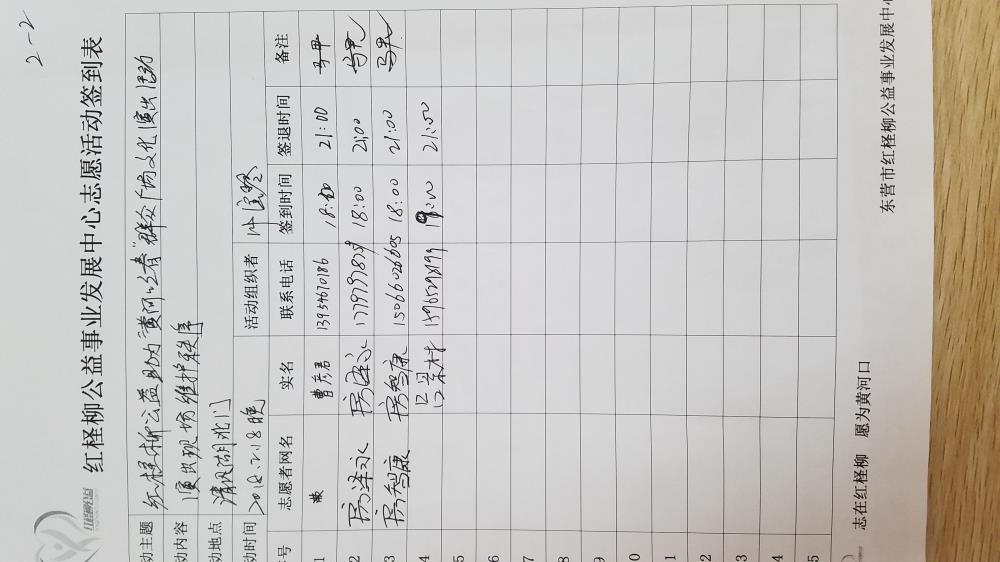 2-2
红柽柳公益事业发展中心志愿活动签到表
动主题 红柽柳公益助力"黄河之春"群众广场文化演出活动
动内容 演出现场维护秩序
动地点 清风湖北门
动时间 2018.2.18晚 活动组织者
号 志愿者网名 实名 联系电话 签到时间 签退时间 备注
1 曹彦君 13954670186 18:00 21:00 马甲
2 房泽永 房泽永 18:00 21:00 马甲
3 房智康 房智康 15066026605 18:00 21:00 马甲
4 吕景村 21:00
5
6
7
8
9
0
1
2
3
4
5
志在红柽柳 愿为黄河口
东营市红柽柳公益事业发展中心